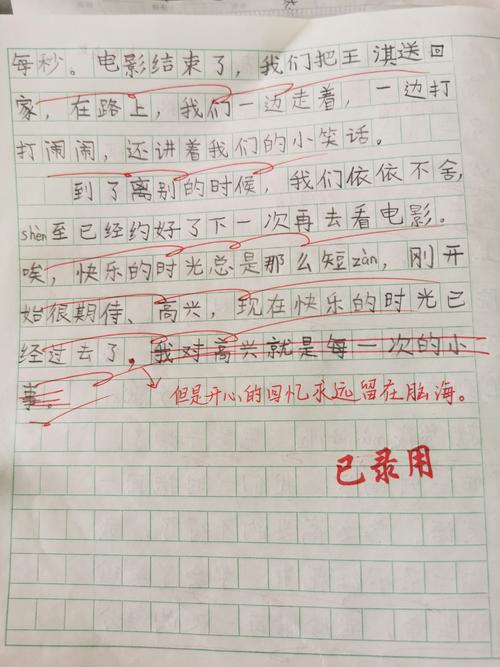 每秒。电影结束了，我们把王淇送回
家，在路上，我们一边走着，一边打
打闹闹，还讲着我们的小笑话。
到了离别的时候，我们依依不舍，
shèn至已经约好了下一次再去看电影。
唉，快乐的时光总是那么短zàn，刚开
始很期待、高兴，现在快乐的时光已
经过去了。我对高兴就是每一次的小
事。
但是开心的回忆永远留在脑海。
已录用